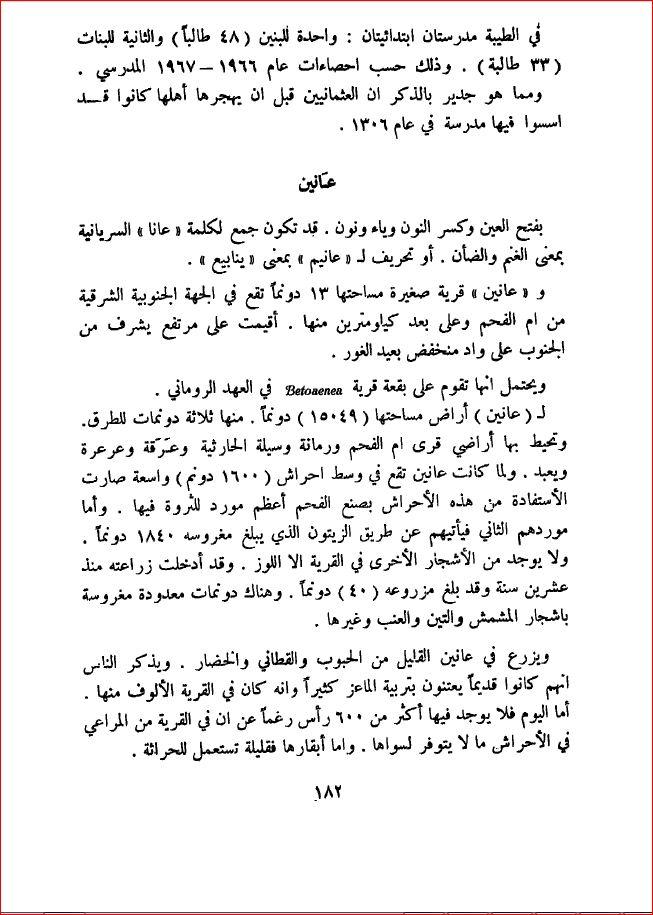 في الطيبة مدرستان ابتدائيتان : واحدة للبنين ( ٤٨ طالباً ) والثانية للبنات
( ٣٣ طالبة ) . وذلك حسب احصاءات عام ١٩٦٦ – ١٩٦٧ المدرسي .
ومما هو جدير بالذكر ان العثمانيين قبل ان يهجرها أهلها كانوا قــد
اسسوا فيها مدرسة في عام ١٣٠٦ .
عَانين
بفتح العين وكسر النون وياء ونون . قد تكون جمع لكلمة « عانا » السريانية
بمعنى الغنم والضأن . أو تحريف لـ « عانيم » بمعنى « ينابيع » .
و « عانين » قرية صغيرة مساحتها ١٣ دونماً تقع في الجهة الجنوبية الشرقية
من ام الفحم وعلى بعد كيلومترين منها . أقيمت على مرتفع يشرف من
الجنوب على واد منخفض بعيد الغور .
ويحتمل انها تقوم على بقعة قرية Betoaenea في العهد الروماني .
لـ ( عانين ) أراض مساحتها ( ١٥٠٤٩ ) دونماً . منها ثلاثة دونمات للطرق.
وتحيط بها أراضي قرى ام الفحم ورمانة وسيلة الحارثية وعَرَقة وعرعرة
ويعبد . ولما كانت عانين تقع في وسط احراش ( ١٦٠٠ دونم ) واسعة صارت
الأستفادة من هذه الأحراش بصنع الفحم أعظم مورد للثروة فيها . وأما
موردهم الثاني فيأتيهم عن طريق الزيتون الذي يبلغ مغروسه ١٨٤٠ دونماً .
ولا يوجد من الأشجار الأخرى في القرية الا اللوز . وقد أدخلت زراعته منذ
عشرين سنة وقد بلغ مزروعه ( ٤٠ ) دونماً . وهناك دونمات معدودة مغروسة
باشجار المشمش والتين والعنب وغيرها .
ويزرع في عانين القليل من الحبوب والقطاني والخضار . ويذكر الناس
انهم كانوا قديماً يعتنون بتربية الماعز كثيراً وانه كان في القرية الألوف منها .
أما اليوم فلا يوجد فيها أكثر من ٦٠٠ رأس رغماً عن ان في القرية من المراعي
في الأحراش ما لا يتوفر لسواها . واما أبقارها فقليلة تستعمل للحراثة .
١٨٢